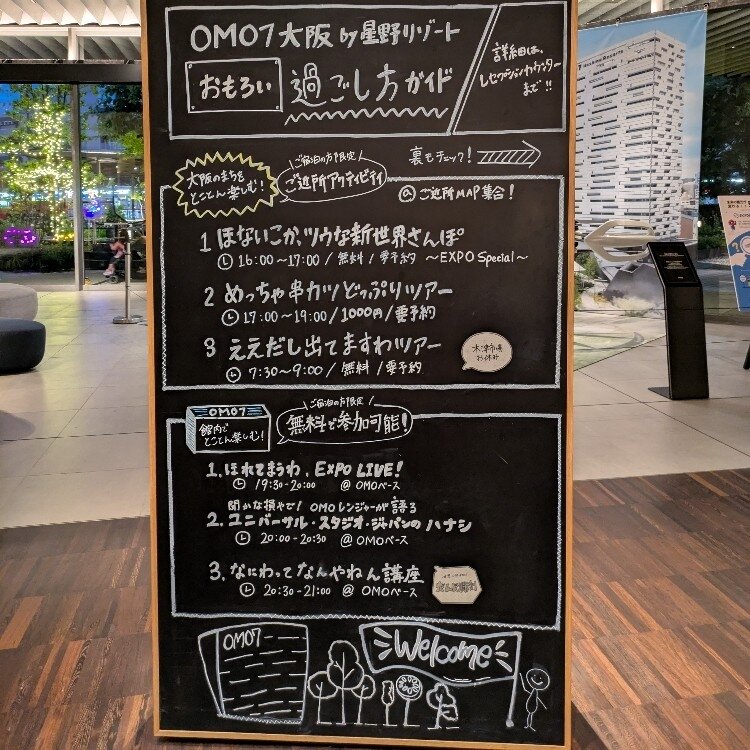 OMO7大阪 by 星野リゾート
おもろい 過ごし方ガイド
詳細は、
レセプションカウンター
まで!!
大阪のまちを
とことん楽しむ!
ご宿泊の方限定
ご近所アクティビティ
裏もチェック!
@ご近所MAP集合!
1 ほないこか、ツウな新世界さんぽ
16:00〜17:00 / 無料 / 要予約 〜EXPO Special〜
2 めっちゃ串カツどっぷりツアー
17:00〜19:00 / 1000円 / 要予約
3 ええだし出てますわツアー
7:30〜9:00 / 無料 / 要予約
木津市場
お休み
OMO7
館内で
とことん楽しむ!
ご宿泊の方限定
無料で参加可能!
1. ほれてまうわ、EXPO LIVE!
19:30-20:00 @OMOベース
聞かな損やで! OMOレンジャーが語る
2. ユニバーサル・スタジオ・ジャパンのハナシ
20:00-20:30 @OMOベース
3. なにわってなんやねん講座
20:30-21:00 @OMOベース
OMO7
Welcome